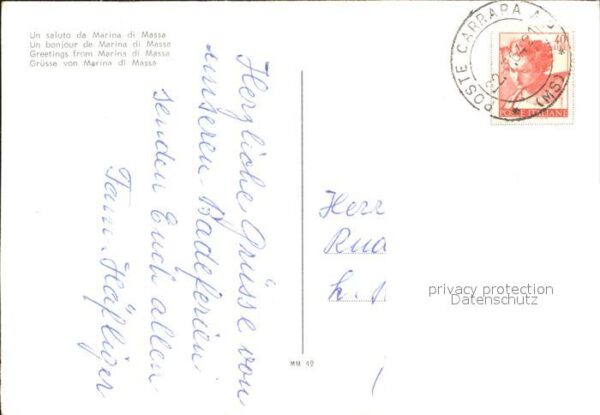 Un saluto da Marina di Massa
Un bonjour de Marina di Massa
Greetings from Marina di Massa
Grüsse von Marina di Massa
Herzliche Grüsse von
unseren Badeferien
senden Euch allen
Fam. Häfliger
POSTE CARRARA
(MS)
40
POSTE ITALIANE
Herr
privacy protection
Datenschutz
MM 49